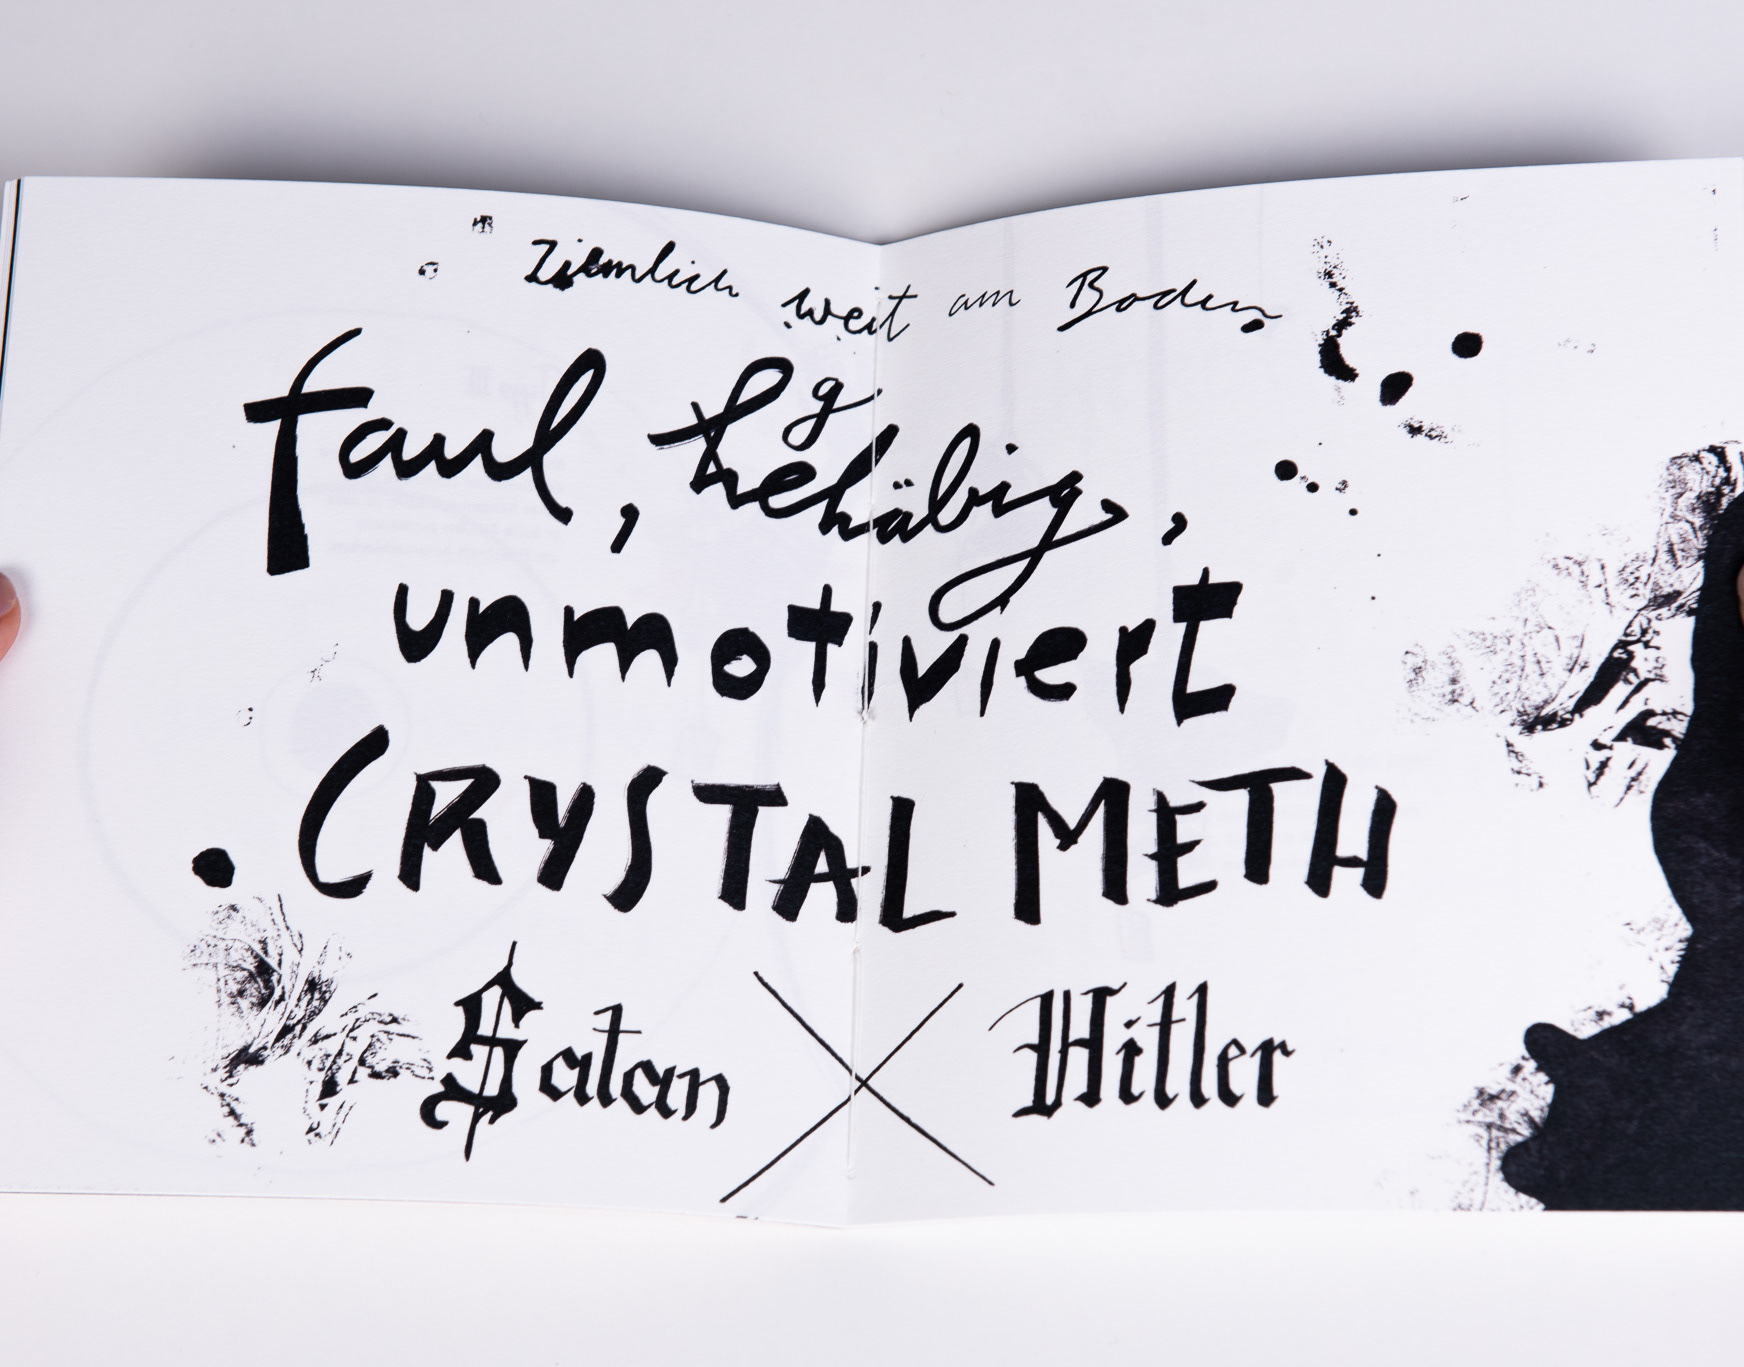 Ziemlich weit am Boden
faul, gehäbig,,
unmotiviert
CRYSTAL METH
Satan X Hitler